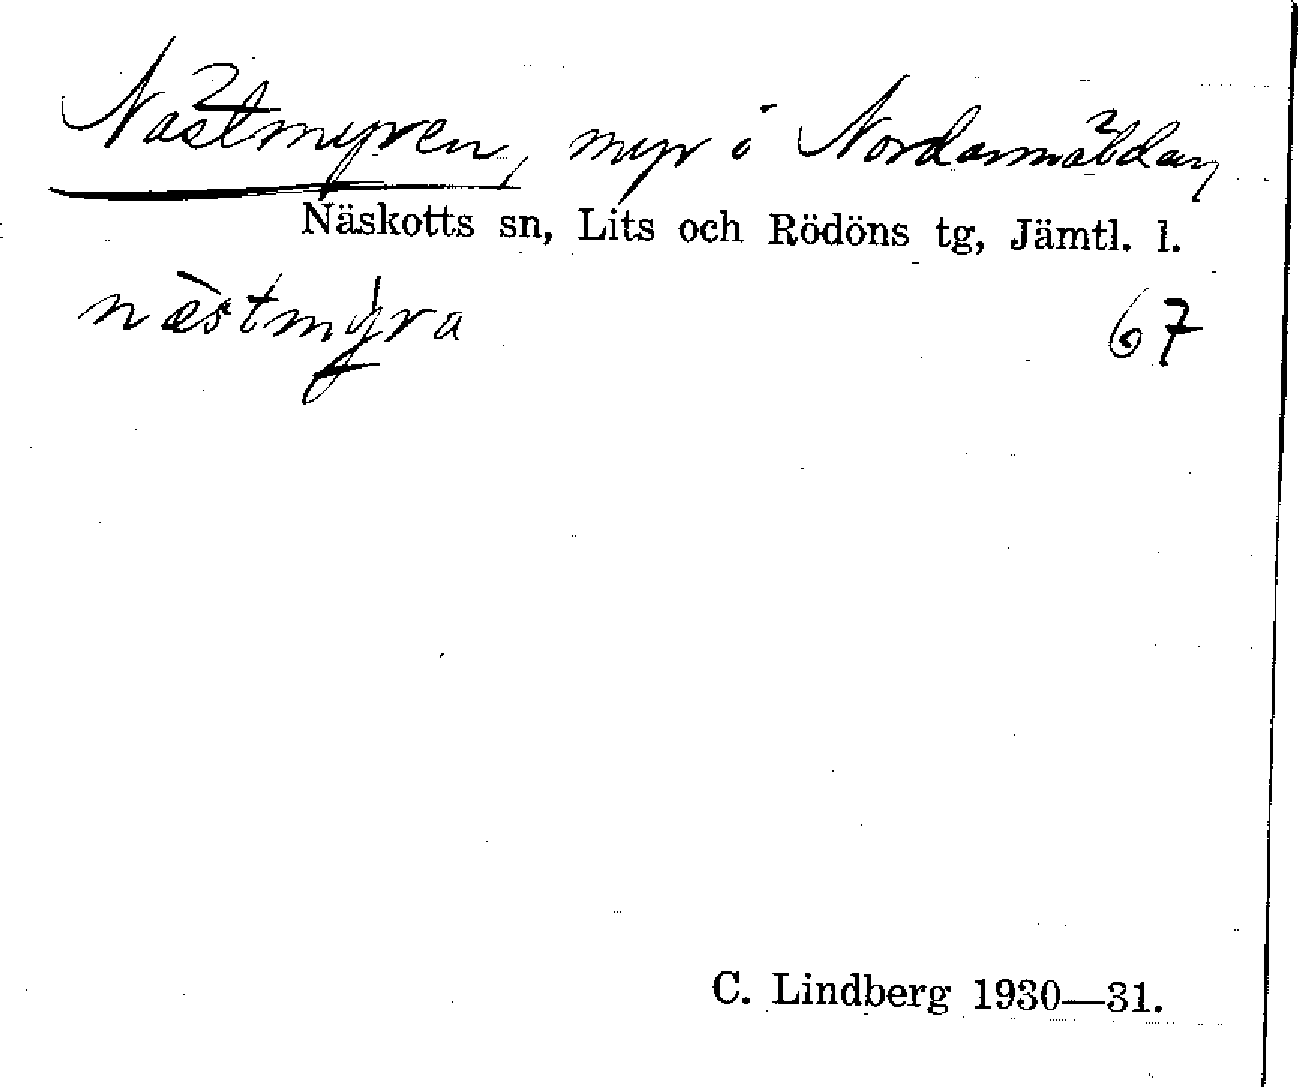 Nästmyren, myr i Nordannälden,
Näskotts sn, Lits och Rödöns tg, Jämtl. l.
næ̀stmýra
67
C. Lindberg 1930—31.